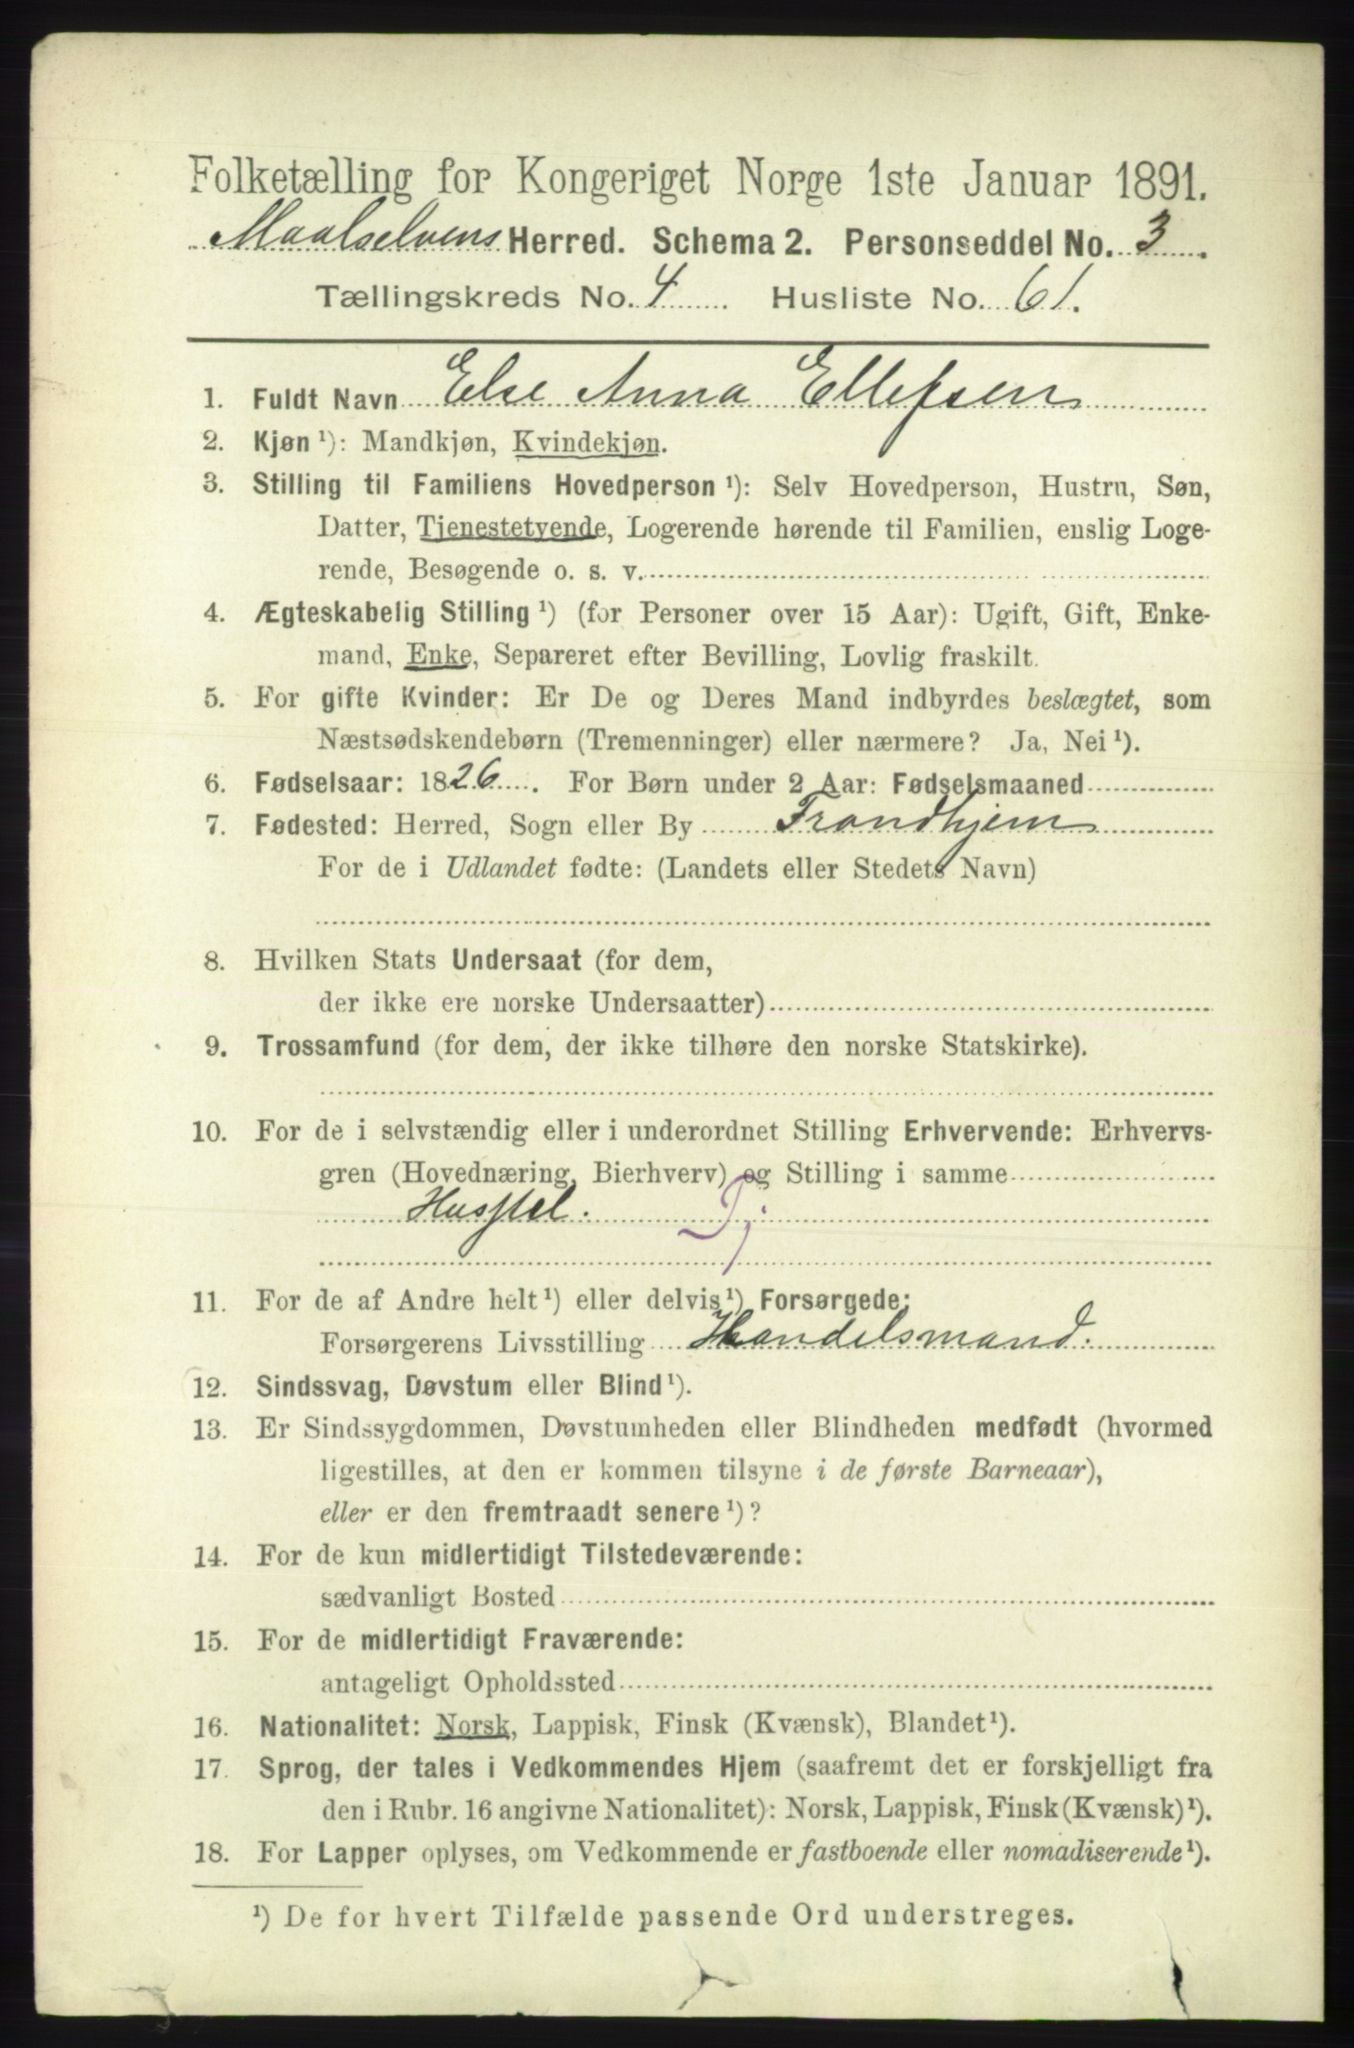 Folketælling for Kongeriget Norge 1ste Januar 1891.
Maalselvens Herred. Schema 2. Personseddel No. 3.
Tællingskreds No. 4. Husliste No. 61.
1. Fuldt Navn Else Anna Ellefsen
2. Kjøn ¹): Mandkjøn, Kvindekjøn.
3. Stilling til Familiens Hovedperson ¹): Selv Hovedperson, Hustru, Søn,
Datter, Tjenestetyende, Logerende hørende til Familien, enslig Loge-
rende, Besøgende o. s. v.
4. Ægteskabelig Stilling ¹) (for Personer over 15 Aar): Ugift, Gift, Enke-
mand, Enke, Separeret efter Bevilling, Lovlig fraskilt.
5. For gifte Kvinder: Er De og Deres Mand indbyrdes beslægtet, som
Næstsødskendebørn (Tremenninger) eller nærmere? Ja, Nei ¹).
6. Fødselsaar: 1826. For Børn under 2 Aar: Fødselsmaaned
7. Fødested: Herred, Sogn eller By Trondhjem
For de i Udlandet fødte: (Landets eller Stedets Navn)
8. Hvilken Stats Undersaat (for dem,
der ikke ere norske Undersaatter)
9. Trossamfund (for dem, der ikke tilhøre den norske Statskirke).
10. For de i selvstændig eller i underordnet Stilling Erhvervende: Erhvervs-
gren (Hovednæring, Bierhverv) og Stilling i samme
Husstel. Tj.
11. For de af Andre helt ¹) eller delvis ¹) Forsørgede:
Forsørgerens Livsstilling Handelsmand.
12. Sindssvag, Døvstum eller Blind ¹).
13. Er Sindssygdommen, Døvstumheden eller Blindheden medfødt (hvormed
ligestilles, at den er kommen tilsyne i de første Barneaar),
eller er den fremtraadt senere ¹)?
14. For de kun midlertidigt Tilstedeværende:
sædvanligt Bosted
15. For de midlertidigt Fraværende:
antageligt Opholdssted
16. Nationalitet: Norsk, Lappisk, Finsk (Kvænsk), Blandet ¹).
17. Sprog, der tales i Vedkommendes Hjem (saafremt det er forskjelligt fra
den i Rubr. 16 angivne Nationalitet): Norsk, Lappisk, Finsk (Kvænsk) ¹).
18. For Lapper oplyses, om Vedkommende er fastboende eller nomadiserende ¹).
¹) De for hvert Tilfælde passende Ord understreges.